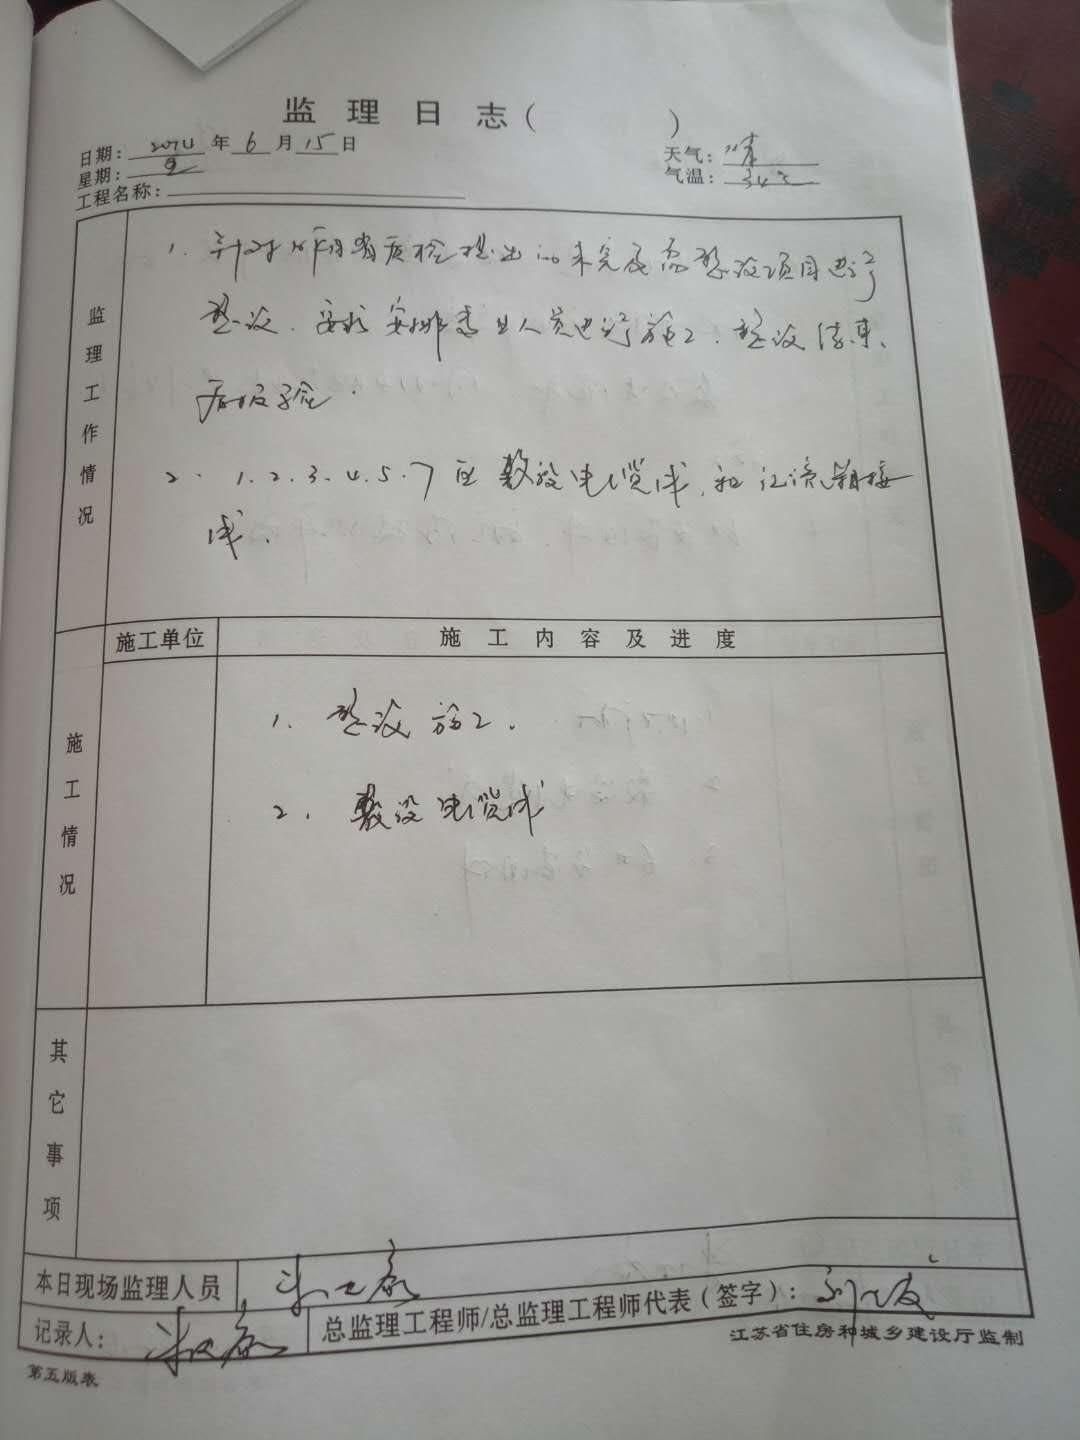 监理日志(　　　)
日期: 2024 年 6 月 15 日
天气: 晴
星期:
气温: 34℃
工程名称:
监理工作情况
1. 针对昨日省质检提出的未完及需整改项目进行
整改. 要求安排专业人员进行施工. 整改结束.
后报验.
2. 1.2.3.4.5.7区敷设电缆线. 和汇流箱接
线.
施工单位
施工内容及进度
施工情况
1. 整改施工.
2. 敷设电缆线
其它事项
本日现场监理人员
记录人:
总监理工程师/总监理工程师代表(签字):
江苏省住房和城乡建设厅监制
第五版表